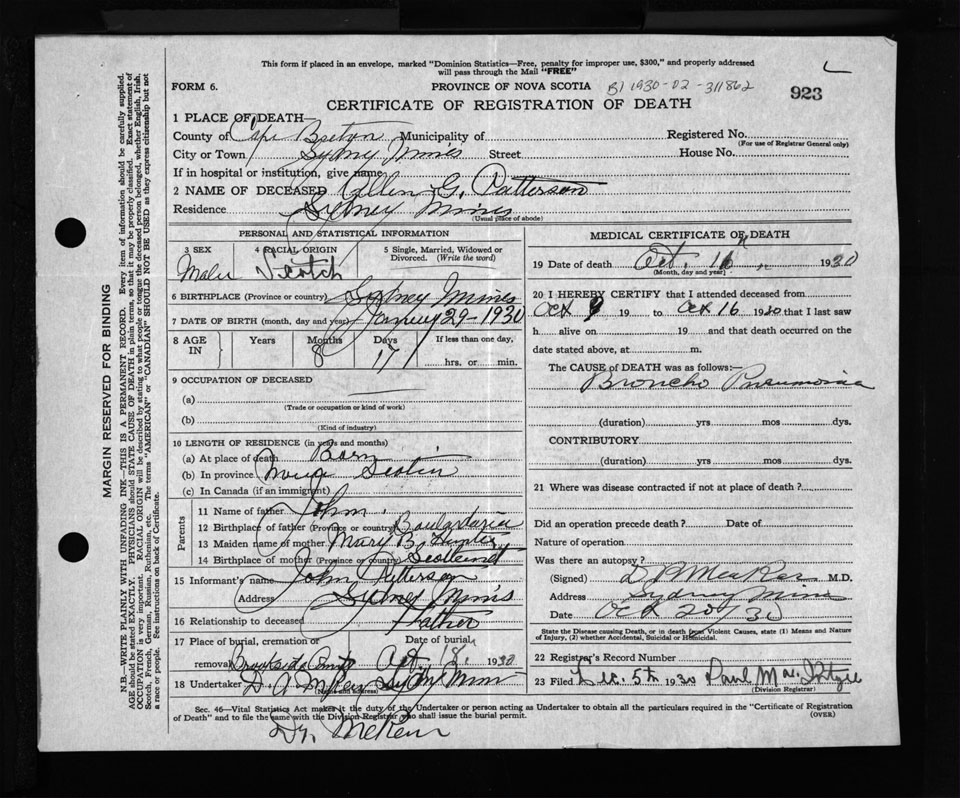 This form if placed in an envelope, marked "Dominion Statistics—Free, penalty for improper use, $300," and properly addressed
will pass through the Mail "FREE"
FORM 6. PROVINCE OF NOVA SCOTIA B1 1930-02-311862 923
CERTIFICATE OF REGISTRATION OF DEATH
1 PLACE OF DEATH—
County of Cape Breton Municipality of Registered No.
(For use of Registrar General only)
City or Town Sydney Mines Street House No.
If in hospital or institution, give name
2 NAME OF DECEASED Allen G. Patterson
Residence Sydney Mines
(Usual place of abode)
PERSONAL AND STATISTICAL INFORMATION
3 SEX 4 RACIAL ORIGIN 5 Single, Married, Widowed or
Divorced. (Write the word)
Male Scotch
6 BIRTHPLACE (Province or country) Sydney Mines
7 DATE OF BIRTH (month, day and year) January 29-1930
8 AGE IN Years Months Days If less than one day,
8 17 hrs. or min.
9 OCCUPATION OF DECEASED
(a)
(Trade or occupation or kind of work)
(b)
(Kind of industry)
10 LENGTH OF RESIDENCE (in years and months)
(a) At place of death Born
(b) In province Nova Scotia
(c) In Canada (if an immigrant)
Parents
11 Name of father John
12 Birthplace of father (Province or country) Boulardarie
13 Maiden name of mother Mary B. Hunter
14 Birthplace of mother (Province or country) Scotland
15 Informant's name John Patterson
Address Sydney Mines
16 Relationship to deceased Father
17 Place of burial, cremation or Date of burial
removal Brookside Oct. 18, 1930
18 Undertaker D. A. Sydney Mines
(Name and address)
MEDICAL CERTIFICATE OF DEATH
19 Date of death Oct. 16, 1930
(Month, day and year)
20 I HEREBY CERTIFY that I attended deceased from
Oct 9 19 to Oct 16 1930 that I last saw
h alive on 19 and that death occurred on the
date stated above, at m.
The CAUSE of DEATH was as follows:—
Broncho Pneumonia
(duration) yrs mos dys.
CONTRIBUTORY
(duration) yrs. mos. dys.
21 Where was disease contracted if not at place of death?
Did an operation precede death? Date of
Nature of operation
Was there an autopsy?
(Signed) M.D.
Address Sydney Mines
Date Oct 20/30
State the Disease causing Death, or in death from Violent Causes, state (1) Means and Nature
of Injury, (2) whether Accidental, Suicidal or Homicidal.
22 Registrar's Record Number
23 Filed Dec. 5th 1930 Paul
(Division Registrar)
Sec. 46—Vital Statistics Act makes it the duty of the Undertaker or person acting as Undertaker to obtain all the particulars required in the "Certificate of Registration
of Death" and to file the same with the Division Registrar who shall issue the burial permit. (OVER)
Dr.
MARGIN RESERVED FOR BINDING
N.B.—WRITE PLAINLY WITH UNFADING INK—THIS IS A PERMANENT RECORD. Every item of information should be carefully supplied.
AGE should be stated EXACTLY. PHYSICIANS should STATE CAUSE OF DEATH in plain terms, so that it may be properly classified. Exact statement of
OCCUPATION is very important. RACIAL ORIGIN will be described by stating to what people or tongue the deceased person belonged, whether English, Irish,
Scotch, French, German, Russian, Ruthenian, etc. The terms "AMERICAN" or "CANADIAN" SHOULD NOT BE USED as they express citizenship but not
a race or people. See instructions on back of Certificate.